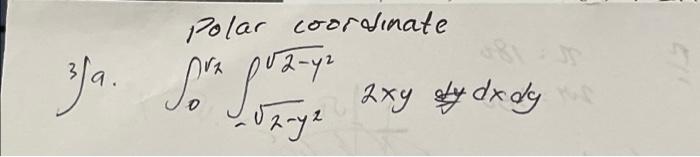 Polar coordinate
3/a. ∫₀^√2 ∫_{-√2-y²}^{√2-y²} 2xy dx dy